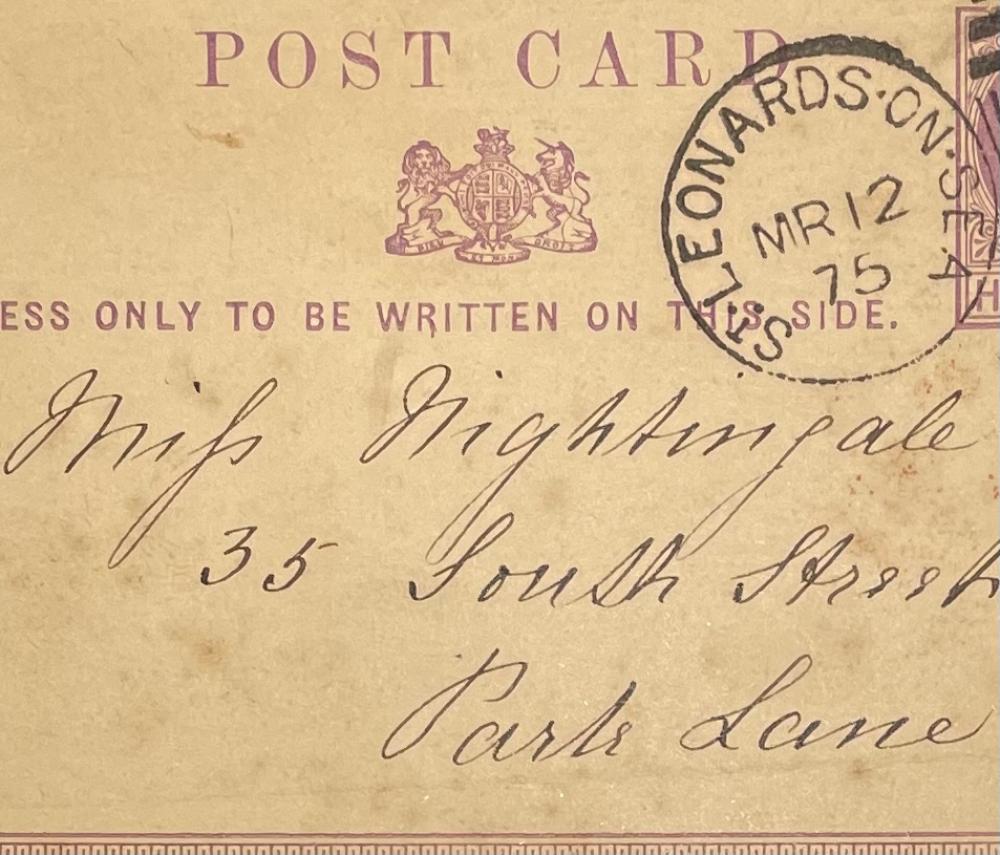 POST CARD
ST. LEONARDS·ON·SEA
MR 12
75
DIEU ET MON DROIT
ESS ONLY TO BE WRITTEN ON THIS SIDE.
Miss Nightingale
35 South Street
Park Lane